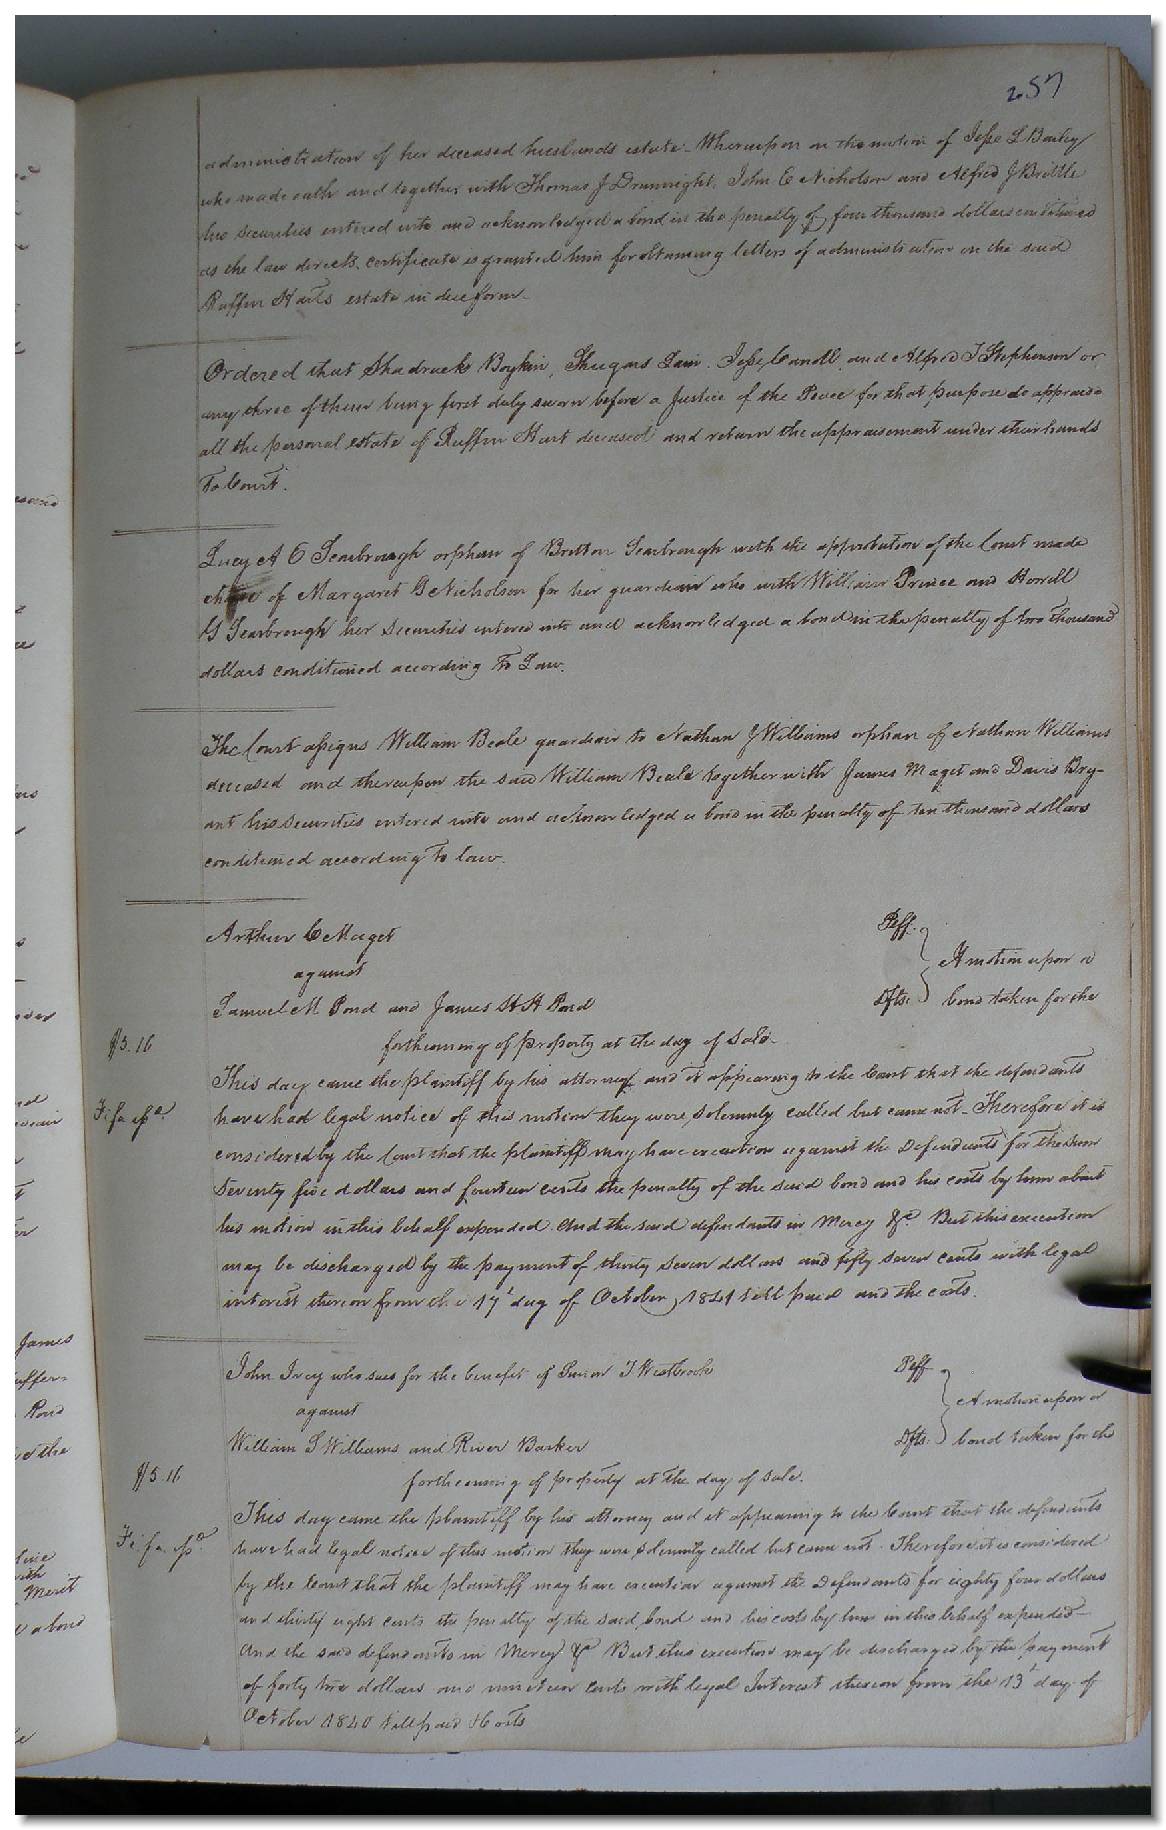 257
administration of her deceased husbands estate. Whereupon on the motion of Jesse L Barley
who made oath and together with Thomas J Drumright, John E Nicholson and Alfred J Brittle
his securities entered into and acknowledged a bond in the penalty of four thousand dollars conditioned
as the law directs, certificate is granted him for obtaining letters of administration on the said
Ruffin Harts estate in due form.
Ordered that Shadrack Boykin, Shugars Lain, Jesse Candl, and Alfred T Stephenson or
any three of them being first duly sworn before a Justice of the Peace for that purpose do appraise
all the personal estate of Ruffin Hart deceased and return the appraisement under their hands
To Court.
Lucy A E Scarbrough orphan of Britton Scarbrough with the approbation of the Court made
choice of Margaret G Nicholson for her guardian who with William Prince and Howell
G Scarbrough her securities entered into and acknowledged a bond in the penalty of two thousand
dollars conditioned according to Law.
The Court assigns William Beale guardian to Nathan J Williams orphan of Nathan Williams
deceased and thereupon the said William Beale together with James Maget and Davis Bry-
ant his securities entered into and acknowledged a bond in the penalty of ten thousand dollars
conditioned according to law.
Arthur C Maget Plff.
against A motion upon a
Samuel M Pond and James H H Pond Dfts. bond taken for the
$5.16 forthcoming of property at the day of sale.
This day came the plaintiff by his attorney and it appearing to the Court that the defendants
Fi fa ipd. have had legal notice of this motion they were solemnly called but came not. Therefore it is
considered by the Court that the plaintiff may have execution against the Defendants for the sum
Seventy five dollars and fourteen cents the penalty of the said bond and his costs by him about
his motion in this behalf expended. And the said defendants in Mercy &c. But this execution
may be discharged by the payment of thirty seven dollars and fifty seven cents with legal
interest thereon from the 17t day of October, 1841 till paid and the costs.
John Ivey who sues for the benefit of T Westbrook Plff.
against A motion upon a
William S Williams and River Barker Dfts. bond taken for the
$5.16 forthcoming of property at the day of sale.
This day came the plaintiff by his attorney and it appearing to the Court that the defendants
Fi. fa. ipd. have had legal notice of this motion they were solemnly called but came not. Therefore it is considered
by the Court that the plaintiff may have execution against the Defendants for eighty four dollars
and thirty eight cents the penalty of the said bond and his costs by him in this behalf expended
And the said defendants in Mercy &c But this execution may be discharged by the payment
of forty two dollars and nineteen cents with legal Interest thereon from the 13t day of
October 1840 till paid & Costs